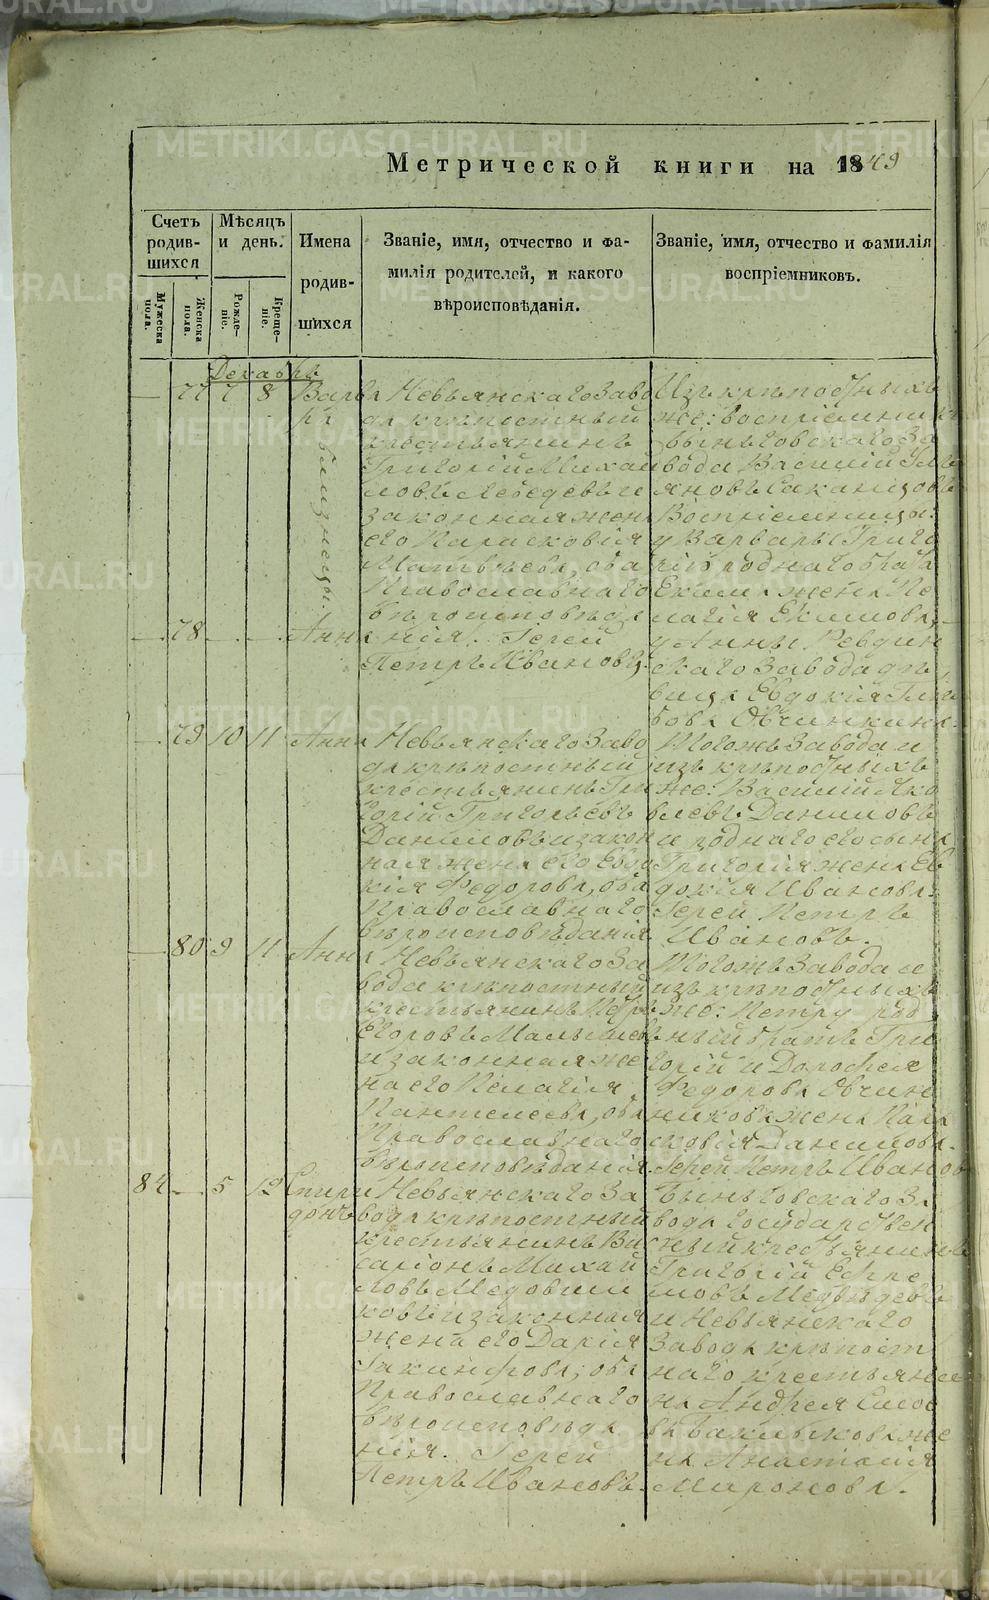 Метрической книги на 1849
Счетъ родившихся
Мѣсяцъ и день.
Имена родившихся
Званіе, имя, отчество и фамилія родителей, и какого вѣроисповѣданія.
Званіе, имя, отчество и фамилія воспріемниковъ.
Мужеска пола.
Женска пола.
Рожденіе.
Крещеніе.
Декабрь
77 7 8
Варва
ра
близнецы.
Невьянскаго Заво
да крѣпостный
крестьянинъ
Григорій Михаи
ловъ Лебедевъ и
законная жена
его Парасковія
Матвѣева, оба
Православнаго
вѣроисповѣда
нія. Іерей
Петръ Ивановъ.
Изъ крѣпостныхъ
же: воспріемник
Быньговскаго За
вода Василій
Воспріемницы:
у Варвары Григо
рія роднаго брата
Екима жена Пе
лагія Екимова,
у Анны Ревдин
скаго Завода дѣ
вица Евдокія Глѣ
бова Овчинкина.
78
Анна
79 10 11
Анна
Невьянскаго Заво
да крѣпостный
крестьянинъ Гри
горій Григорьевъ
Даниловъ и закон
ная жена его Евдо
кія Федорова, оба
Православнаго
вѣроисповѣданія
Тогожъ Завода и
изъ крѣпостныхъ
же: Василій Яко
влевъ Даниловъ
и роднаго его сына
Григорія жена Ев
докія Иванова.
Іерей Петръ
Ивановъ.
80 9 11
Анна
Невьянскаго За
вода крѣпостный
крестьянинъ Петръ
Егоровъ Малышев
и законная же
на его Пелагія
Пантелеева, оба
Православнаго
вѣроисповѣданія
Тогожъ Завода и
изъ крѣпостныхъ
же: Петру род
ный братъ Гри
горій и Дорофея
Федорова Овчин
никова жена Пара
сковія Данилова.
Іерей Петръ Иванов
84 5 12
Спири
донъ
Невьянскаго За
вода крѣпостный
крестьянинъ Ви
саріонъ Михай
ловъ Медовщи
ковъ и законная
жена его Дарія
Іакинфова, оба
Православнаго
вѣроисповѣда
нія. Іерей
Петръ Ивановъ.
Быньговскаго За
вода Государствен
ный крестьянинъ
Григорій Ефре
мовъ Медвѣдевъ
и Невьянскаго
Завода крѣпост
наго крестьяни
на Андрея
же
на Анастасія
Миронова.
METRIKI.GASO-URAL.RU